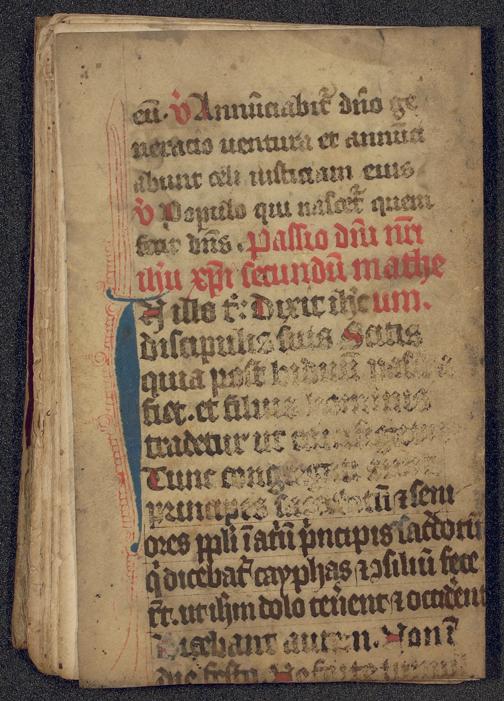 eū. v Annūciabit̄ dn̄o ge
neracio uentura et annūci
abunt celi iusticiam eius
v Populo qui nascet̄ quem
fecit dn̄s. Passio dn̄i nr̄i
ihū xp̄i secundū mathe
N illo t̄: Dixit ihc̄ um.
discipulis suis Scitis
quia post biduū pasca
fiet. et filius hominis
tradetur ut crucifigatur
Tunc congregati sunt
principes sacerdotū ⁊ seni
ores pp̄li ī atriū pͥncipis sac̄dotū
q̇ dicebat̄ cayphas ⁊ ɔsiliū fece
rt̄. ut ihm̄ dolo tēnent ⁊ occident̄
Dicebant autem. Non ī
die festo. Ne forte tumul